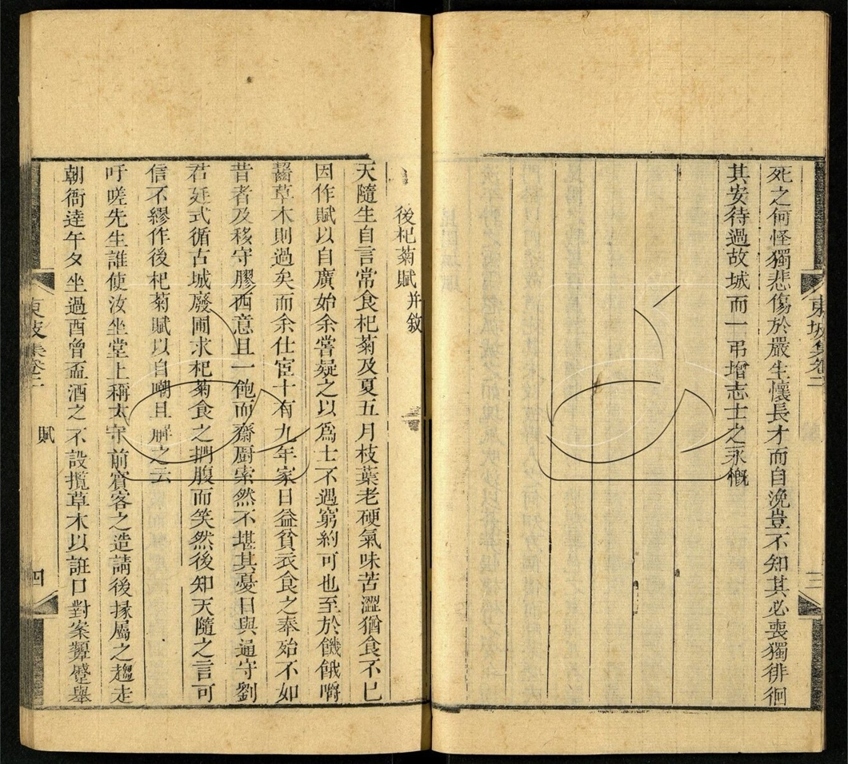 死之何怪獨悲傷於嚴生懷長才而自浼豈不知其必喪獨徘徊
其安待過故城而一弔增志士之永慨
東坡集卷二
三
後杞菊賦并敘
天隨生自言常食杞菊及夏五月枝葉老硬氣味苦澀猶食不已
因作賦以自廣始余嘗疑之以為士不遇窮約可也至於饑餓嚼
齧草木則過矣而余仕宦十有九年家日益貧衣食之奉殆不如
昔者及移守膠西意且一飽而齋廚索然不堪其憂日與通守劉
君廷式循古城廢圃求杞菊食之捫腹而笑然後知天隨之言可
信不繆作後杞菊賦以自嘲且解之云
吁嗟先生誰使汝坐堂上稱太守前賓客之造請後掾屬之趨走
朝衙達午夕坐過酉曾盃酒之不設攬草木以誑口對案顰蹙舉
東坡集卷二
賦
四